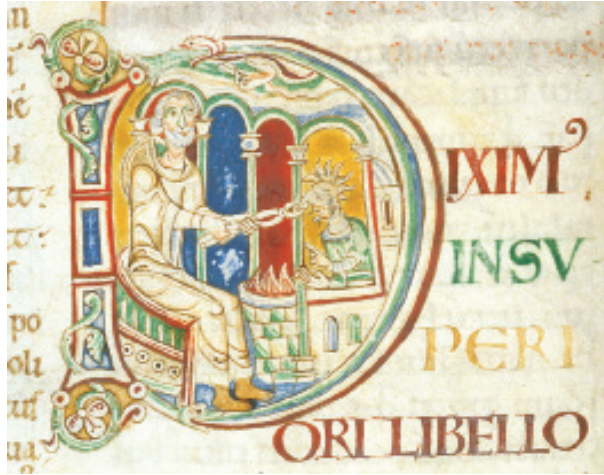 DIXIM'
INSV
PERI
ORI LIBELLO